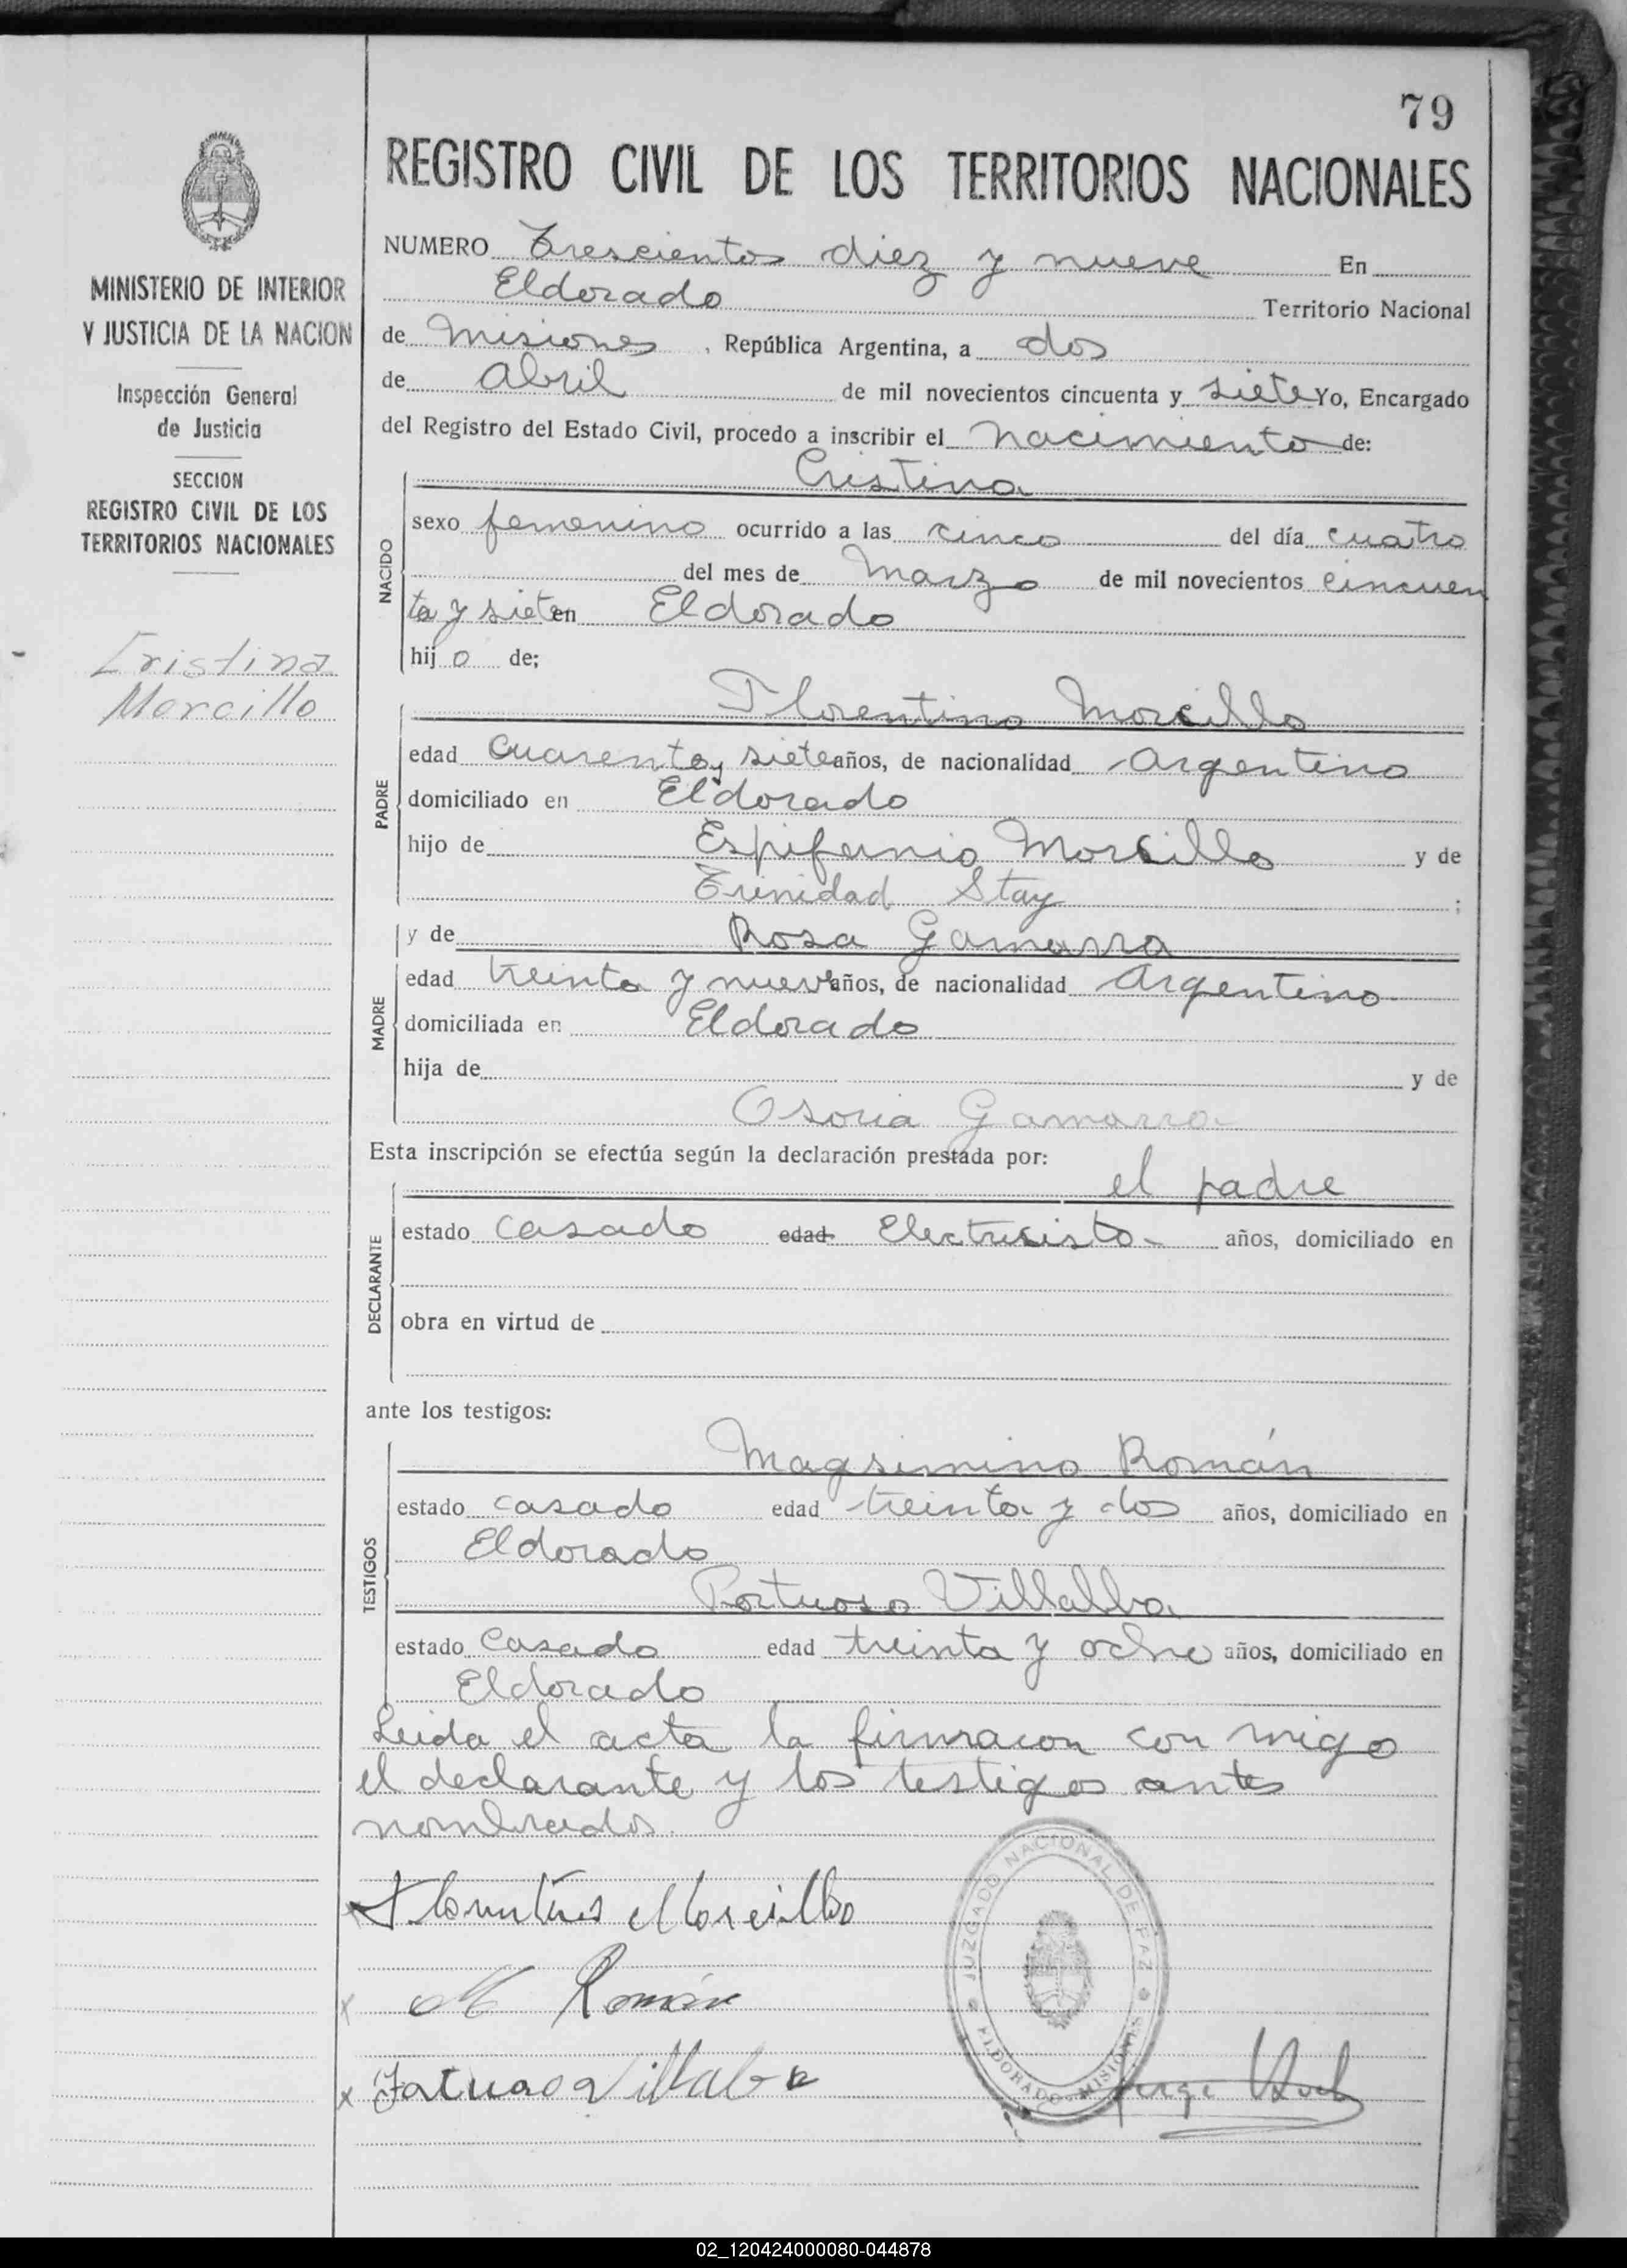 79
REGISTRO CIVIL DE LOS TERRITORIOS NACIONALES
MINISTERIO DE INTERIOR
Y JUSTICIA DE LA NACION
Inspección General
de Justicia
SECCION
REGISTRO CIVIL DE LOS
TERRITORIOS NACIONALES
Cristina
Morcillo
NUMERO Trescientos diez y nueve En
Eldorado Territorio Nacional
de Misiones, República Argentina, a dos
de Abril de mil novecientos cincuenta y siete Yo, Encargado
del Registro del Estado Civil, procedo a inscribir el nacimiento de:
NACIDO
Cristina
sexo femenino ocurrido a las cinco del día cuatro
del mes de Marzo de mil novecientos cincuen
ta y siete en Eldorado
hij o de;
PADRE
Florentino Morcillo
edad cuarenta y siete años, de nacionalidad Argentino
domiciliado en Eldorado
hijo de Espifanio Morcillo y de
Trinidad Stay ;
y de Rosa Gamarra
MADRE
edad treinta y nueve años, de nacionalidad Argentino
domiciliada en Eldorado
hija de y de
Osoria Gamarra
Esta inscripción se efectúa según la declaración prestada por:
DECLARANTE
el padre
estado casado edad Electricista años, domiciliado en
obra en virtud de
ante los testigos:
TESTIGOS
Magsimino Román
estado casado edad treinta y dos años, domiciliado en
Eldorado
Portuoso Villalba
estado casado edad treinta y ocho años, domiciliado en
Eldorado
Leida el acta la firmaron con migo
el declarante y los testigos antes
nombrados.
Florentino Morcillo
M Román
Fatuoso Villalba
JUZGADO NACIONAL DE PAZ
ELDORADO - MISIONES
Jorge
02_120424000080-044878